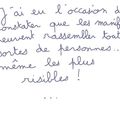 J'ai eu l'occasion d
constater que les manif
euvent rassembler tout
sortes de personnes...
même les plus
risibles !
...